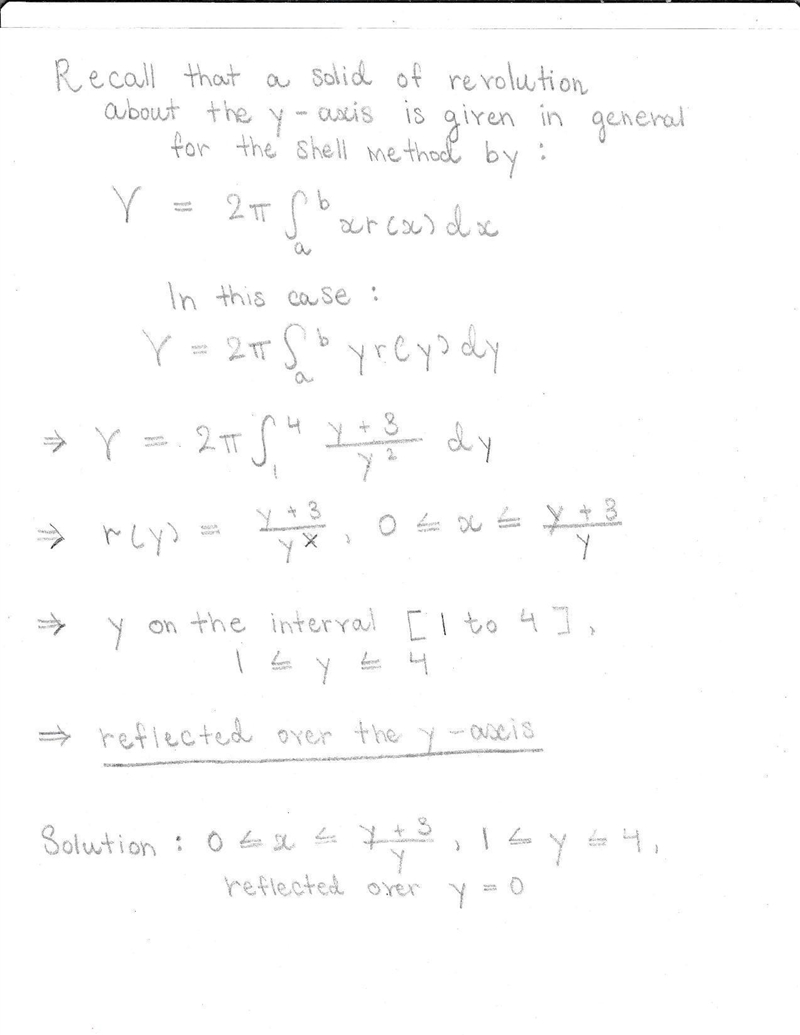 Recall that a solid of revolution
about the y-axis is given in general
for the shell method by:
V = 2π ∫_a^b x r(x) dx
In this case:
V = 2π ∫_a^b y r(y) dy
⇒ V = 2π ∫_1^4 (y + 3)/y² dy
⇒ r(y) = (y + 3)/y^x, 0 ≤ x ≤ (y + 3)/y
⇒ y on the interval [1 to 4],
1 ≤ y ≤ 4
⇒ reflected over the y-axis
Solution: 0 ≤ x ≤ (y + 3)/y, 1 ≤ y ≤ 4,
reflected over y = 0